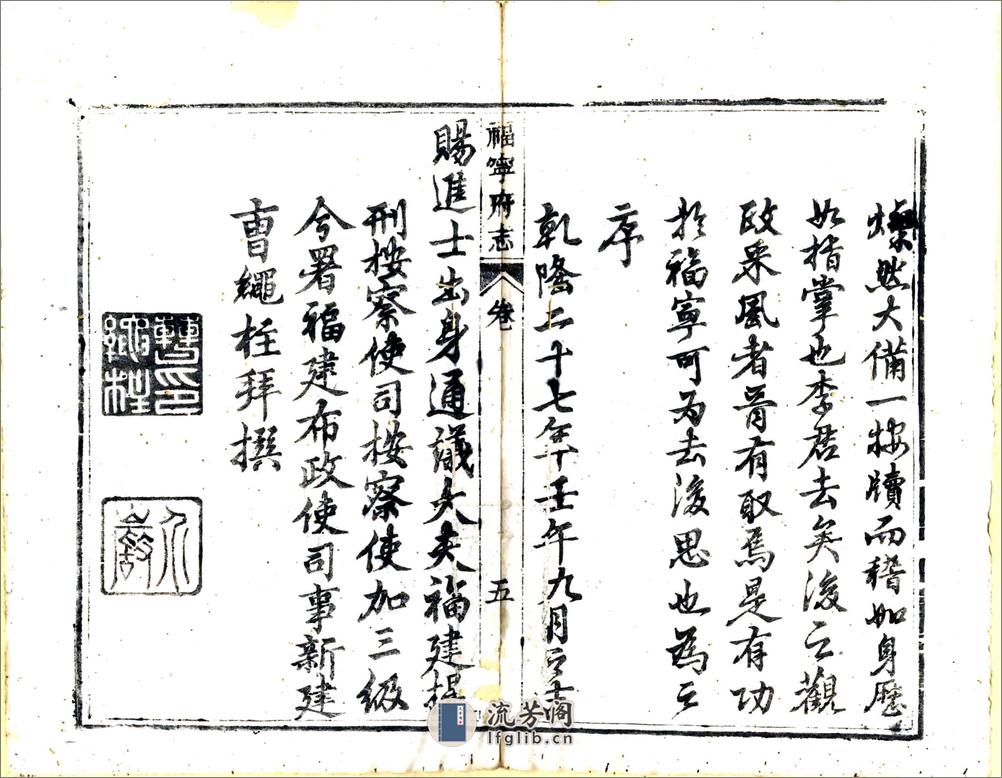 燦然大備一按牘而稽如身歷
如指掌也李君去矣後之觀
政采風者胥有取焉是有功
於福寧可為去後思也為之
序
乾隆二十七年壬午九月之吉
福寧府志
卷
五
賜進士出身通議大夫福建提
刑按察使司按察使加三級
今署福建布政使司事新建
曹繩柱拜撰
曹印繩柱
流芳阁
lfglib.cn